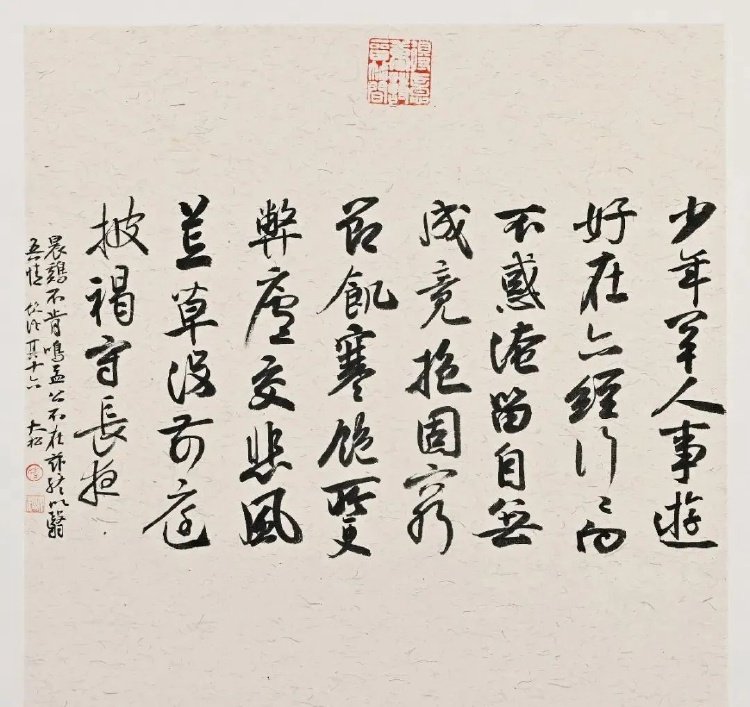 少年罕人事遊
好在六經行〻向
不惑淹留自無
成竟抱固窮
節飢寒飽所更
弊廬交悲風
荒草没前庭
披褐守長夜
晨鷄不肯鳴孟公不在兹終以翳
吾情 飲酒其十六 大松